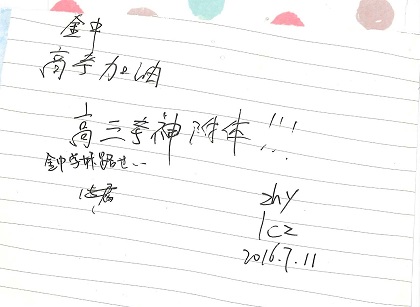 金中
高考加油
高三考神附体!!!
金中学妹路过...
zhy
lcz
2016.7.11